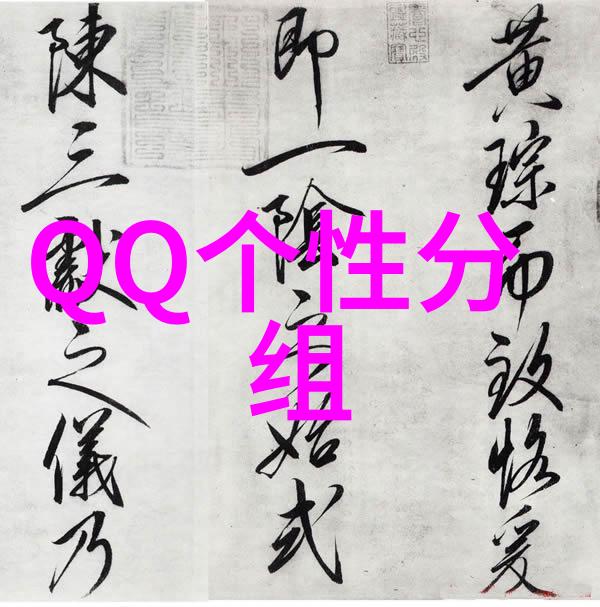 黄琮而致恪爰
即一陰之始式
陳三獻之儀乃
QQ个性分
组